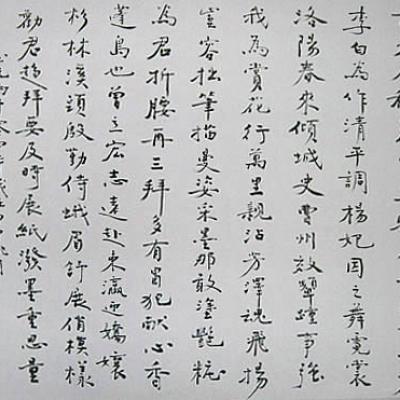 李白為作清平調楊妃因之舞霓裳
洛陽春來傾城史曹州效顰踵事強
我為賞花行萬里親沾芳澤魂飛揚
豈容拙筆描曼姿采墨那敢塗艷粧
為君折腰再三拜多有冒犯獻心香
蓬島也曾立宏志遠赴東瀛迎嬌孃
杉林溪頭殷勤侍蛾眉舒展俏模樣
勸君趁拜要及時展紙潑墨重思量